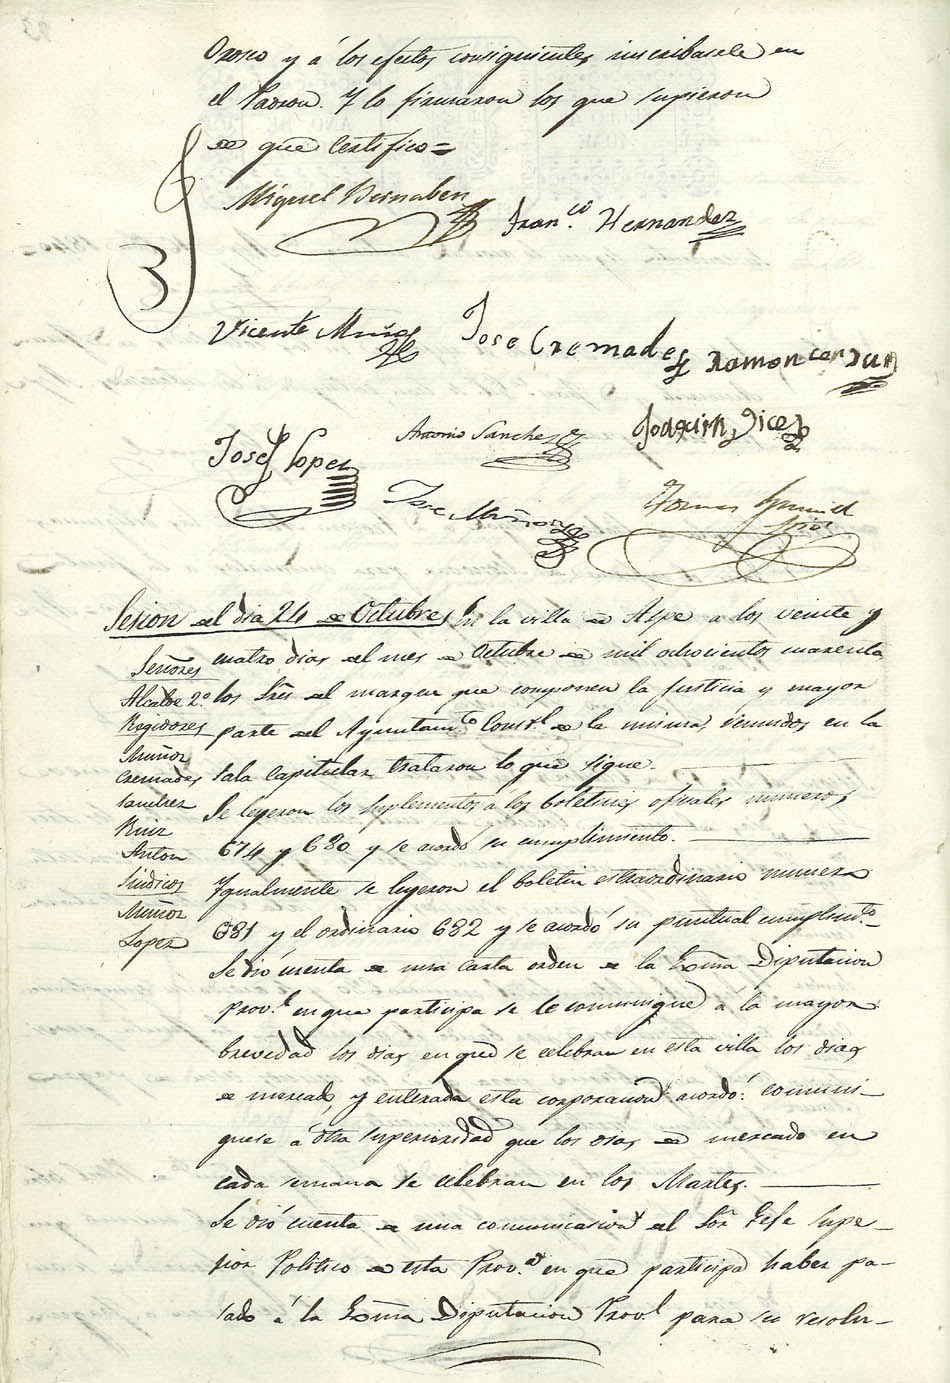 Orosco y á los efectos consiguientes inscribasele en
el Padron. Y lo firmaron los que supieron
de que Certifico=
Miguel Bernabeu
Fran.co Hernandez
Vicente Muñoz
Jose Cremades
Ramon
Jose Lopez
Antonio Sanchez
Joaquin
Jose Muñoz
Tomas
Srio
Sesion del dia 24 de Octubre,
En la villa de Aspe a los veinte y
cuatro dias del mes de Octubre de mil ochocientos cuarenta
los Sres del margen que componen la Justicia y mayor
parte del Ayuntam.to Const.l de la misma, reunidos en la
sala Capitular trataron lo que sigue.
Señores
Alcalde 2.o
Regidores
Muñoz
Cremades
Sanchez
Ruiz
Anton
Sindicos
Muñoz
Lopez
Se leyeron los suplementos á los boletines oficiales numeros
674 y 680 y se acordó su cumplimiento.
Ygualmente se leyeron el boletin estraordinario numero
681 y el ordinario 682 y se acordó su puntual cumplim.to
Se dió cuenta de una carta orden de la Exma Diputacion
Prov.l en que participa se le comunique á la mayor
brevedad los dias en que se celebran en esta villa los dias
de mercado, y enterada esta corporacion acordó: comuni-
quese á dha superioridad que los dias de mercado en
cada semana se celebran en los Martes.
Se dió cuenta de una comunicacion del Sor Gefe Supe-
rior Politico de esta Prov.a en que participa haber pa-
sado á la Exma Diputacion Prov.l para su resolu-